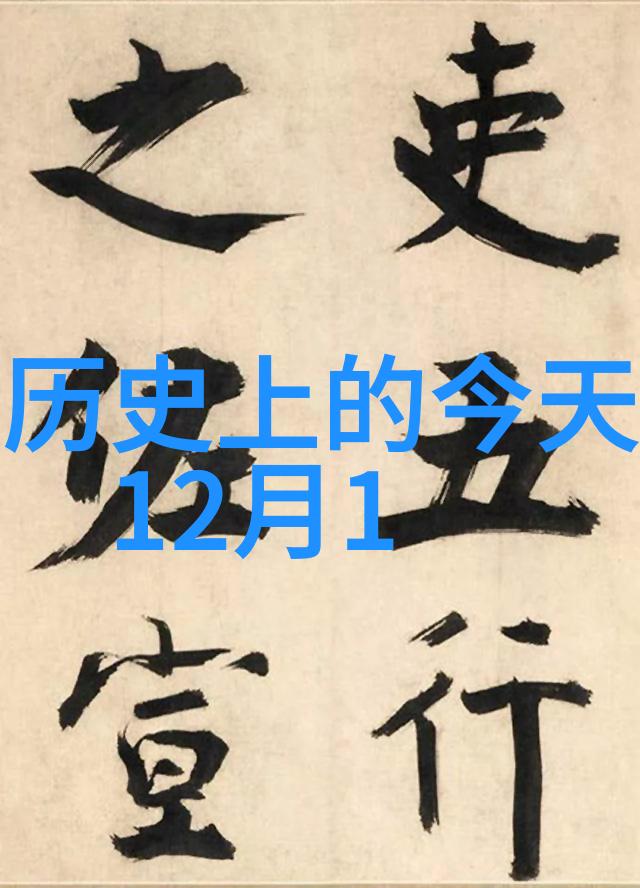 吏五行
之佐宣
历史上的今天
12月1